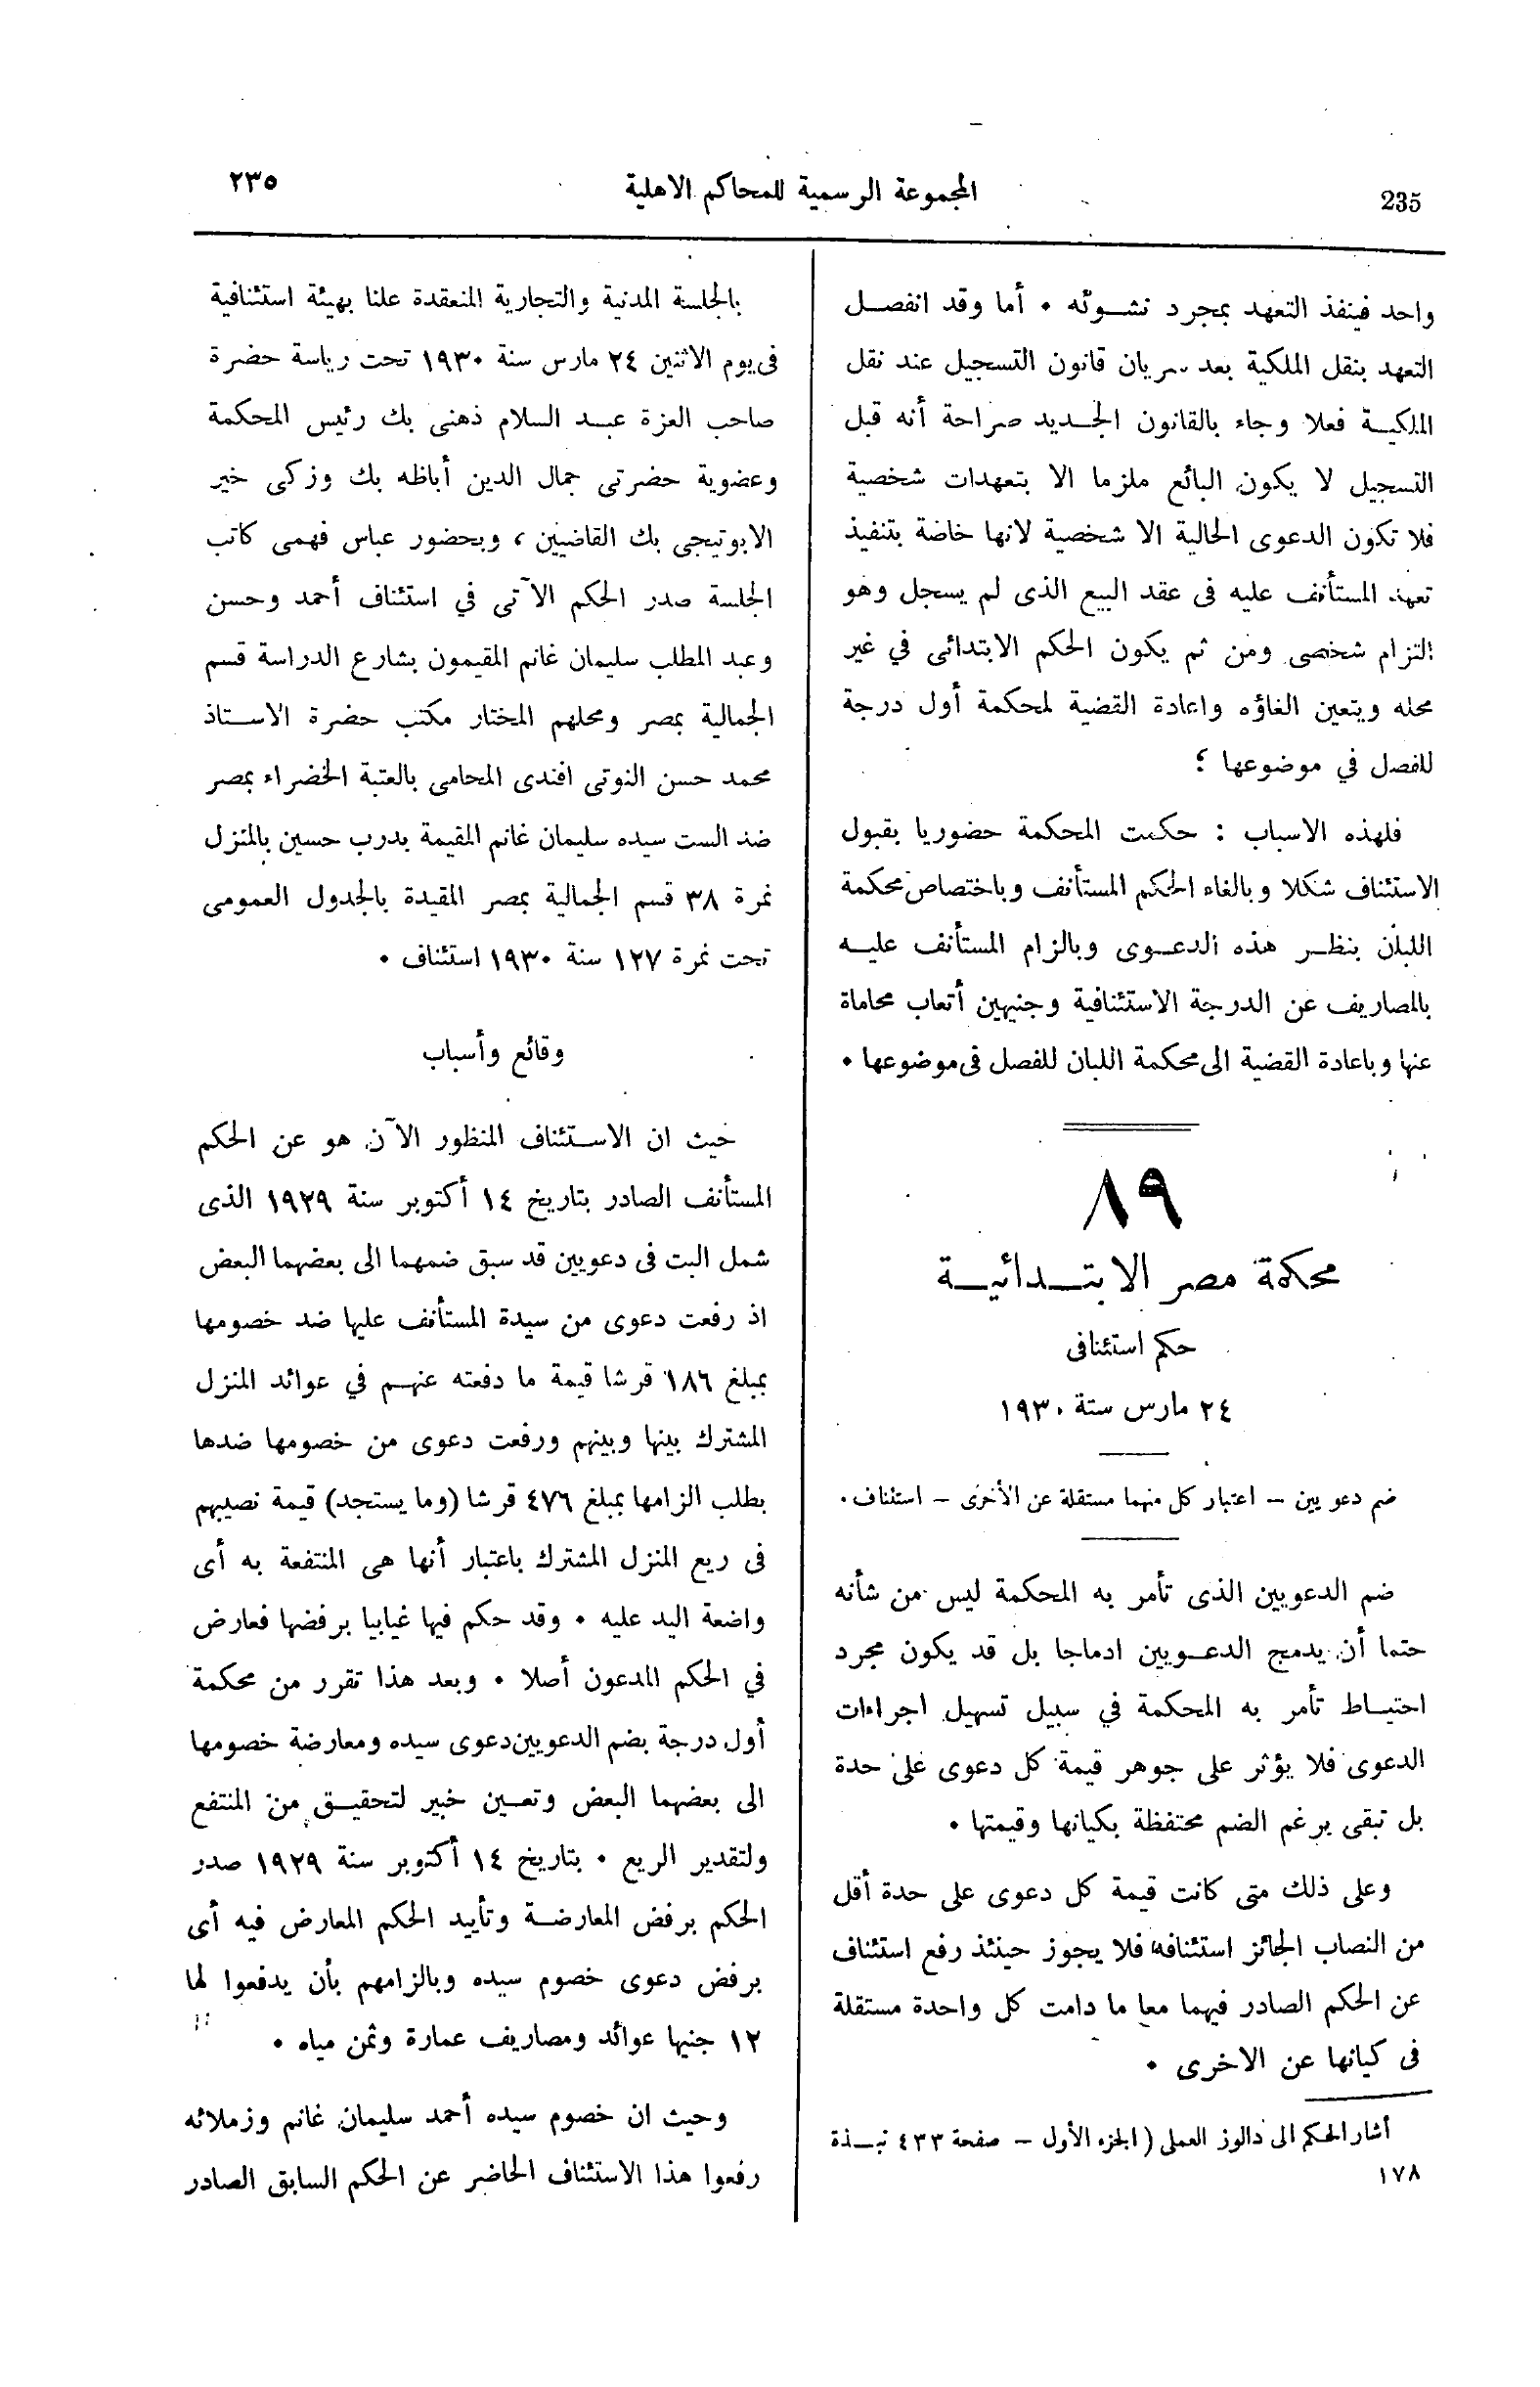 235
المجموعة الرسمية للمحاكم الاهلية
٢٣٥
واحد فينفذ التعهد بمجرد نشوئه • أما وقد انفصل
التعهد بنقل الملكية بعد سريان قانون التسجيل عند نقل
الملكية فعلا وجاء بالقانون الجديد صراحة أنه قبل
التسجيل لا يكون البائع ملزما الا بتعهدات شخصية
فلا تكون الدعوى الحالية الا شخصية لانها خاصة بتنفيذ
تعهد المستأنف عليه فى عقد البيع الذى لم يسجل وهو
التزام شخصى ومن ثم يكون الحكم الابتدائى في غير
محله ويتعين الغاؤه واعادة القضية لمحكمة أول درجة
للفصل في موضوعها ؛
فلهذه الاسباب : حكمت المحكمة حضوريا بقبول
الاستئناف شكلا وبالغاء الحكم المستأنف وباختصاص محكمة
اللبان بنظر هذه الدعوى وبالزام المستأنف عليه
بالمصاريف عن الدرجة الاستئنافية وجنيهين أتعاب محاماة
عنها وباعادة القضية الى محكمة اللبان للفصل فى موضوعها •
٨٩
محكمة مصر الابتدائية
حكم استئنافى
٢٤ مارس ستة ١٩٣٠
ضم دعويين – اعتبار كل منهما مستقلة عن الأخرى – استئناف .
ضم الدعويين الذى تأمر به المحكمة ليس من شأنه
حتما أن يدمج الدعويين ادماجا بل قد يكون مجرد
احتياط تأمر به المحكمة في سبيل تسهيل اجراءات
الدعوى فلا يؤثر على جوهر قيمة كل دعوى على حدة
بل تبقى برغم الضم محتفظة بكيانها وقيمتها •
وعلى ذلك متى كانت قيمة كل دعوى على حدة أقل
من النصاب الجائز استئنافه فلا يجوز حينئذ رفع استئناف
عن الحكم الصادر فيهما معا ما دامت كل واحدة مستقلة
فى كيانها عن الاخرى •
أشار الحكم الى دالوز العملى (الجزء الأول – صفحة ٤٣٣ نبذة
١٧٨
بالجلسة المدنية والتجارية المنعقدة علنا بهيئة استئنافية
فى يوم الاثنين ٢٤ مارس سنة ١٩٣٠ تحت رياسة حضرة
صاحب العزة عبد السلام ذهنى بك رئيس المحكمة
وعضوية حضرتى جمال الدين أباظه بك وزكى خير
الابوتيجى بك القاضيين ، وبحضور عباس فهمى كاتب
الجلسة صدر الحكم الآتى في استئناف أحمد وحسن
وعبد المطلب سليمان غانم المقيمون بشارع الدراسة قسم
الجمالية بمصر ومحلهم المختار مكتب حضرة الاستاذ
محمد حسن النوتى افندى المحامى بالعتبة الخضراء بمصر
ضد الست سيده سليمان غانم المقيمة بدرب حسين بالمنزل
نمرة ٣٨ قسم الجمالية بمصر المقيدة بالجدول العمومى
تحت نمرة ١٢٧ سنة ١٩٣٠ استئناف •
وقائع وأسباب
حيث ان الاستئناف المنظور الآن هو عن الحكم
المستأنف الصادر بتاريخ ١٤ أكتوبر سنة ١٩٢٩ الذى
شمل البت فى دعويين قد سبق ضمهما الى بعضهما البعض
اذ رفعت دعوى من سيدة المستأنف عليها ضد خصومها
بمبلغ ١٨٦ قرشا قيمة ما دفعته عنهم في عوائد المنزل
المشترك بينها وبينهم ورفعت دعوى من خصومها ضدها
بطلب الزامها بمبلغ ٤٧٦ قرشا (وما يستجد) قيمة نصيبهم
فى ريع المنزل المشترك باعتبار أنها هى المنتفعة به أى
واضعة اليد عليه • وقد حكم فيها غيابيا برفضها فعارض
في الحكم المدعون أصلا • وبعد هذا تقرر من محكمة
أول درجة بضم الدعويين دعوى سيده ومعارضة خصومها
الى بعضهما البعض وتعيين خبير لتحقيق من المنتفع
ولتقدير الريع • بتاريخ ١٤ أكتوبر سنة ١٩٢٩ صدر
الحكم برفض المعارضة وتأييد الحكم المعارض فيه أى
برفض دعوى خصوم سيده وبالزامهم بأن يدفعوا لها
١٢ جنيها عوائد ومصاريف عمارة وثمن مياه •
وحيث ان خصوم سيده أحمد سليمان غانم وزملائه
رفعوا هذا الاستئناف الحاضر عن الحكم السابق الصادر